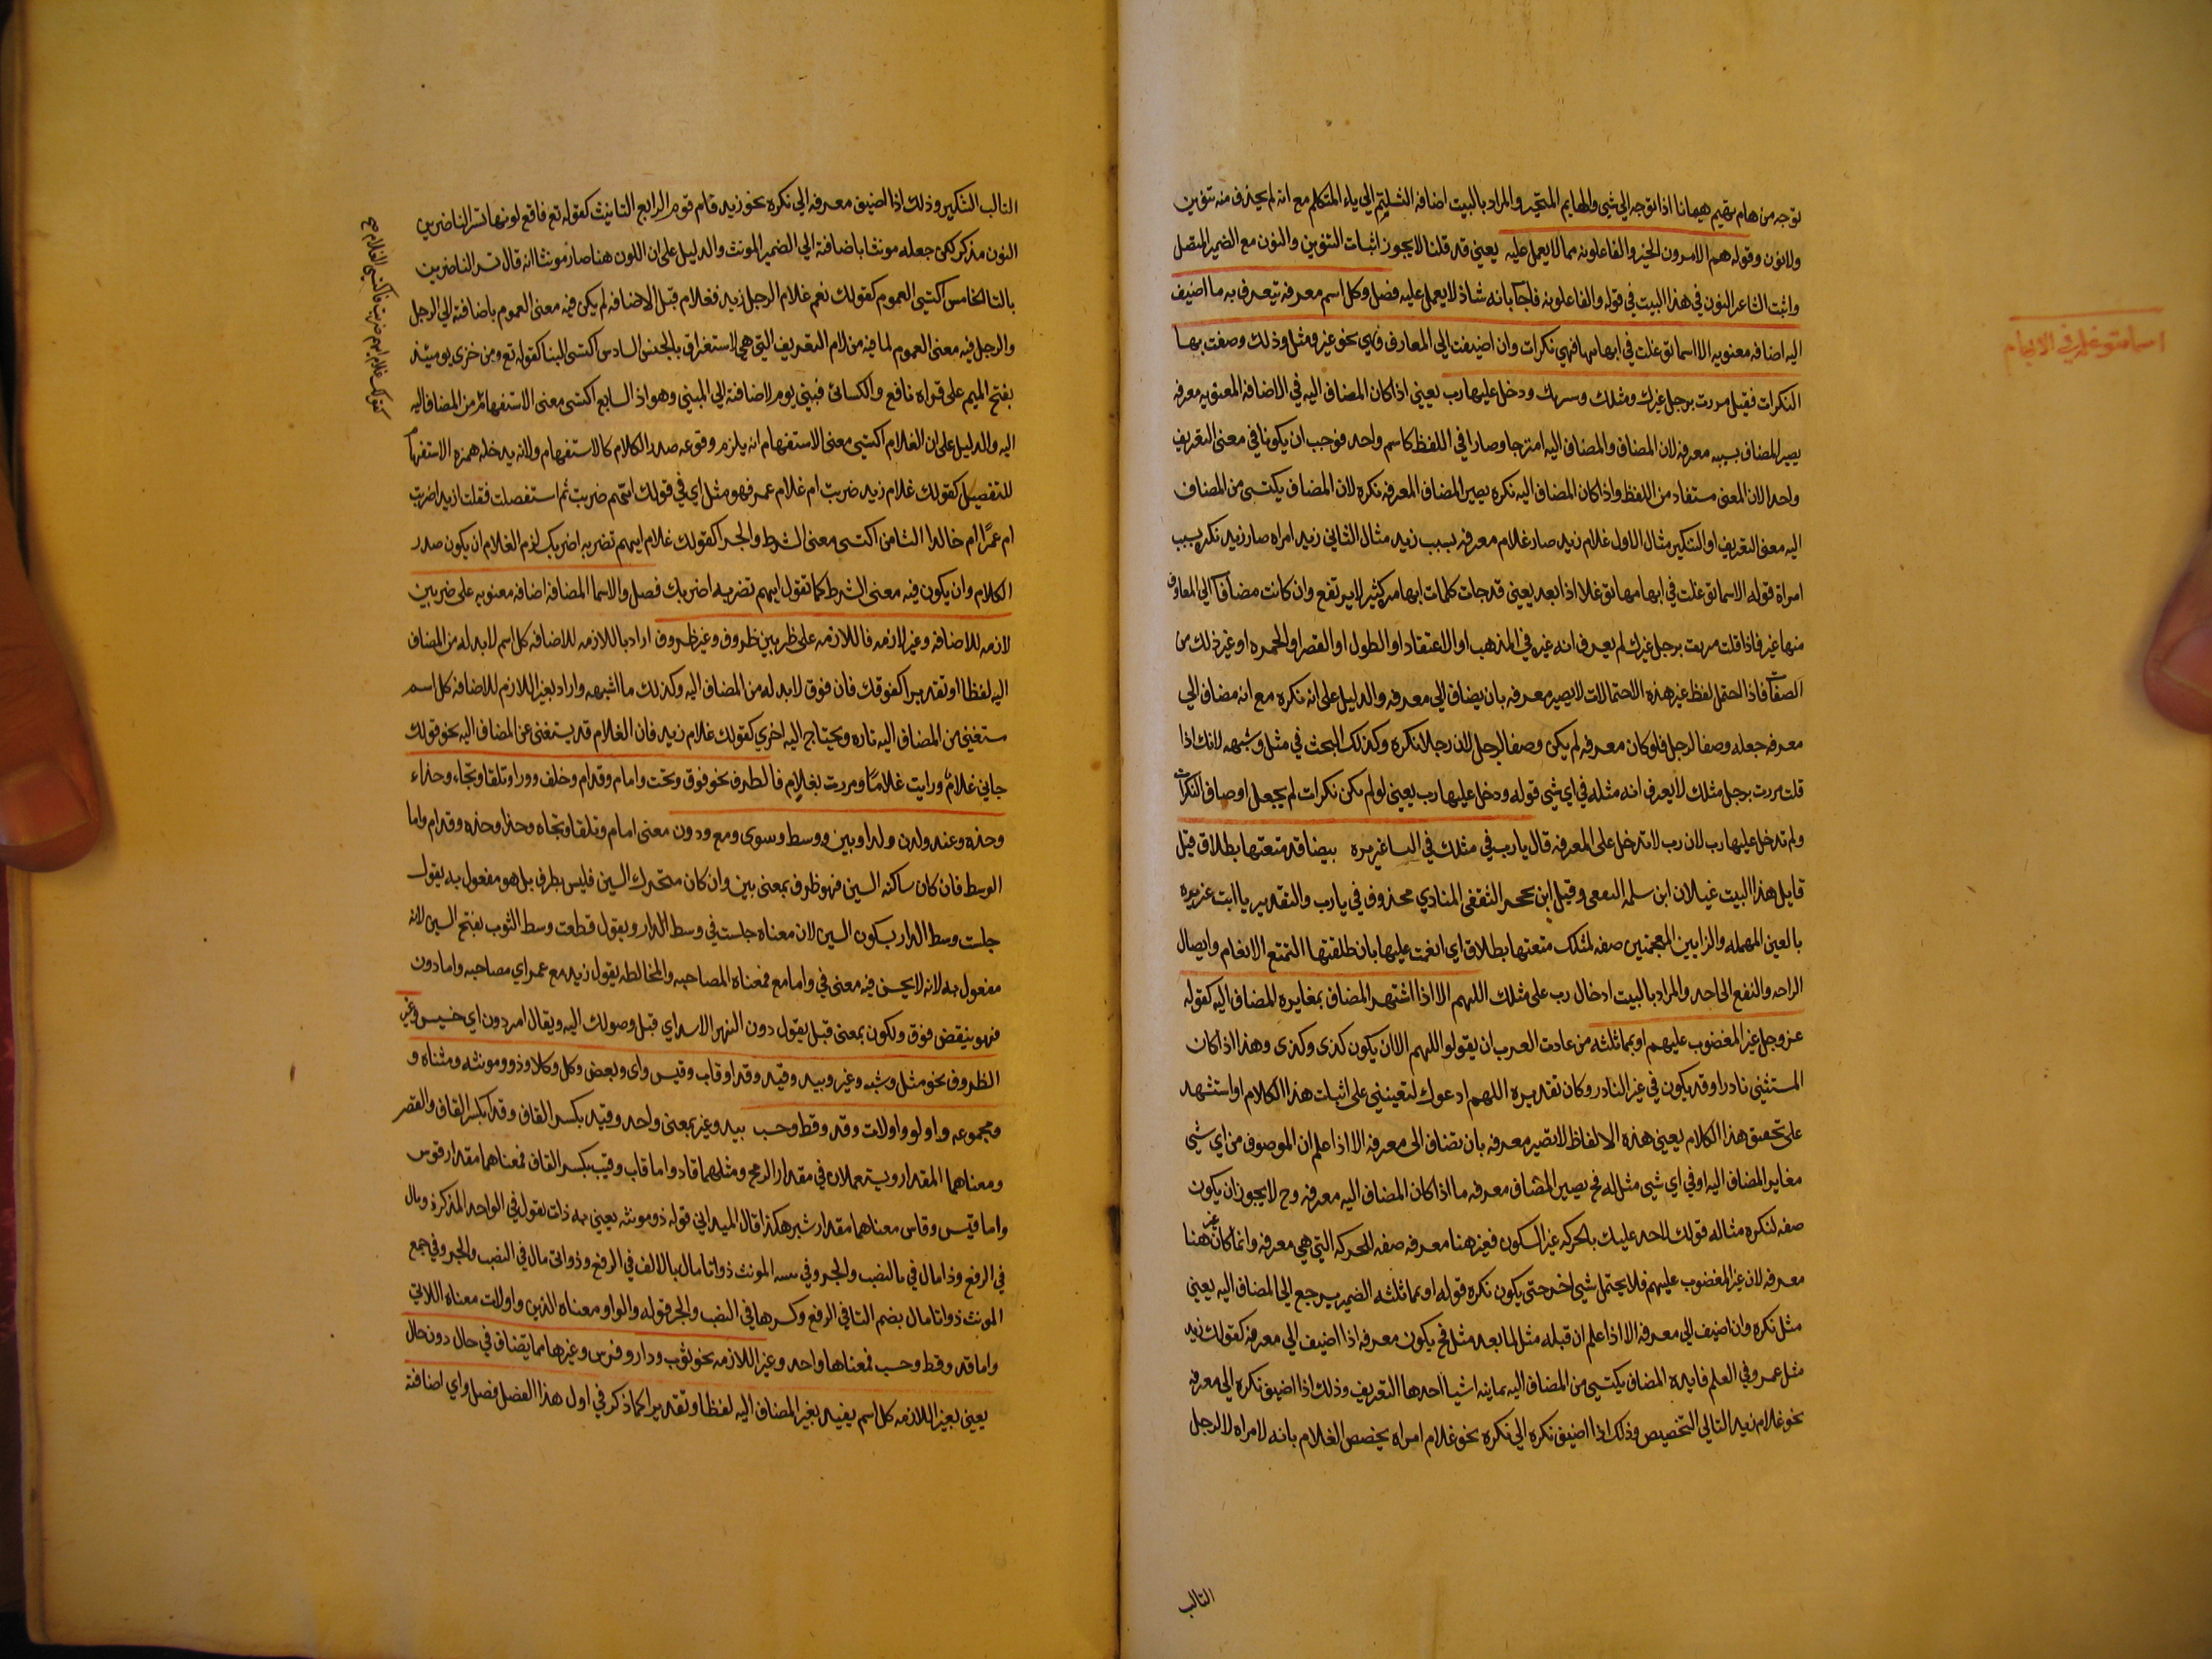 توجه من هام يهيم هيمانا اذا توجه الي شي والهايم المتحير والمراد بالبيت اضافه الي ياء المتكلم مع انه لم يحذف منه تنوين
ولا نون وقوله هم الامرون الخير والفاعلونه مما لا يعمل عليه يعني قد قلنا لا يجوز اثبات التنوين والنون مع الضمير المتصل
واثبت الشاعر النون في هذا البيت في قوله والفاعلونه فاجاب بانه شاذ لا يعمل عليه فصل وكل اسم معرفه يتعرف به ما اضيف
اليه اضافه معنويه الا اسما توغلت في ابهامها فهي نكرات وان اضيفت الي المعارف وهي نحو غير ومثل وذلك وصفت بها
النكرات فقيل مررت برجل غيرك ومثلك وسربك ودخل عليها رب يعني اذا كان المضاف اليه في الاضافه المعنويه معرفه
يصير المضاف بسببه معرفه لان المضاف والمضاف اليه امتزجا وصارا في اللفظ كاسم واحد فوجب ان يكونا في معنى التعريف
واحد الان المعنى مستفاد من اللفظ واذا كان المضاف اليه نكره يصير المضاف المعرفه نكره لان المضاف يكتسى من المضاف
اليه معنى التعريف او التنكير مثال الاول غلام زيد صار غلام معرفه بسبب زيد مثال الثاني زيد امراه صار زيد نكره بسبب
امراة قوله الا اسما توغلت في ابهامها توغلا اذا بعد يعني قد جات كلمات ابهامه كثير لا يرتفع وان كانت مضافا الي المعارف
منها غير فاذا قلت مررت برجل غيرك لم يعرف انه غيره في المذهب او الاعتقاد او الطول او القصر او الحمره او غير ذلك من
الصفات فاذا احتمل لفظ غير هذه الاحتمالات لا يصير معرفه بان يضاف الي معرفه والدليل على انه نكره مع انه مضاف الي
معرفه جعله وصفا لرجل فلو كان معرفه لم يكن وصفا لرجل لان رجلا نكره وكذلك البحث في مثل وشبهه لانك اذا
قلت مررت برجل مثلك لا يعرف انه مثله في اي شي قوله ودخل عليها رب يعني لو لم يكن نكرات لم يجعل اوصاف النكرات
ولم تدخل عليها رب لان رب لا تدخل على المعرفه قال يا رب في مثلك في النسا غريره بيضا قد متعتها بطلاق قيل
قايل هذا البيت غيلان ابن سلمه الثقفى وقيل ابن محجر الثقفى المنادي محذوف في يا رب والتقدير يا ابت عزيزه
بالعين المهمله والزايين المعجمتين صفه لمثلك متعتها بطلاق اي انعمت عليها بان طلقتها التمتع الانعام وايصال
الراحه والنفع الي احد والمراد بالبيت ادخال رب على مثلك اللهم الا اذا اشتهر المضاف بمغايره المضاف اليه كقوله
عز وجل غير المغضوب عليهم او بمماثلته من عادت العرب ان يقولوا اللهم الا ان يكون كذى وكذى وهذا اذا كان
المستثنى نادرا وقد يكون في غير النادر وكان تقديره اللهم ادعوك لتعينني على اثبات هذا الكلام او استشهد
على تحقيق هذا الكلام يعني هذه الالفاظ لا تصير معرفه بان تضاف الى معرفه الا اذا علم ان الموصوف من اي شي
مغاير المضاف اليه او في اي شي مثل له فح يصير المضاف معرفه ما اذا كان المضاف اليه معرفه وح لا يجوز ان يكون
صفه لنكره مثاله قولك لاحد عليك بالحركه غير السكون فغير هنا معرفه صفه للحركه التي هي معرفه وانما كان غير هنا
معرفه لان غير المغضوب عليهم فلا يحتمل شيى اخر حتى يكون نكره قوله او بمماثلته الضمير يرجع الي المضاف اليه يعني
مثل نكره وان اضيف الي معرفه الا اذا علم ان قبله مثل لما بعد مثل فح يكون معرفه اذا اضيف الي معرفه كقولك زيد
مثل عمرو في العلم فايده المضاف يكتسى من المضاف اليه بمايته اشيا احدها التعريف وذلك اذا اضيف نكره الي معرفه
نحو غلام زيد الثاني التخصيص وذلك اذا اضيف نكره الي نكره نحو غلام امراه يخصص الغلام بانه لامراه لا لرجل
الثالث
اسما متوغله في الابهام
الثالث التنكير وذلك اذا اضيف معرفه الي نكره نحو زيد قام قوم الرابع التانيث كقوله تع فاقع لونها تسر الناظرين
النون مذكر لكن جعله مونثا باضافته الي الضمير المونث والدليل على ان اللون هنا صار مونثا انه قال تسر الناظرين
بالتا الخامس اكتسى العموم كقولك نعم غلام الرجل زيد فغلام قبل الاضافه لم يكن فيه معنى العموم باضافته الي الرجل
والرجل فيه معنى العموم لما فيه من لام التعريف التي هي لاستغراق الجنس السادس اكتسى البنا كقوله تع ومن خزى يوميذ
بفتح الميم على قراه نافع والكسائ فبني يوم لاضافته الي المبني وهو اذ السابع اكتسى معنى الاستفهام من المضاف اليه
اليه والدليل على ان الغلام اكتسى معنى الاستفهام انه يلزم وقوعه صدر الكلام كالاستفهام ولانه يدخله همزه الاستفهام
للتفصيل كقولك غلام زيد ضربت ام غلام عمر فهو مثل اي في قولك ايهم ضربت ثم استفصلت فقلت ازيدا ضربت
ام عمرا ام خالدا الثامن اكتسى معنى الشرط والجزا كقولك غلام ايهم تضربه اضربك لزم الغلام ان يكون صدر
الكلام وان يكون فيه معنى الشرط كما تقول ايهم تضربه اضربك فصل والاسما المضافه اضافه معنويه على ضربين
لازمه للاضافه وغير لازمه فاللازمه على ضربين ظروف وغير ظروف اراد باللازمه للاضافه كل اسم لا بد له من المضاف
اليه لفظا او تقديرا كفوقك فان فوق لا بد له من المضاف اليه وكذلك ما اشبهه واراد بغير اللازم للاضافه كل اسم
يستغنى من المضاف اليه تاره ويحتاج اليه اخري كقولك غلام زيد فان الغلام قد يستغنى عن المضاف اليه نحو قولك
جاني غلام ورايت غلاما ومررت بغلام فالظرف نحو فوق وتحت وامام وقدام وخلف وورا وتلقا وتجاه وحذاء
وحذه وعند ولدن ولدا وبين ووسط وسوى ومع ودون معنى امام وتلقا وتجاه وحذا وحذه وقدام واما
الوسط فان كان ساكنه السين فهو ظرف بمعنى بين وان كان متحرك السين فليس بظرف بل هو مفعول به يقول
جلست وسط الدار بسكون السين لان معناه جلست في وسط الدار ويقول قطعت وسط الثوب بفتح السين لانه
مفعول به لانه لا يحسن فيه معنى في واما مع فمعناه المصاحبه والمخالطه يقول زيد مع عمر اي مصاحبه واما دون
فهو ينقض فوق ويكون بمعنى قبل يقول دون النهر الاسد اي قبل وصولك اليه ويقال امر دون اي خسيس وغير
الظروف نحو مثل وشبه وغير وبيد وقيد وقدا وقاب وقيس واى وبعض وكل وكلا وذو ومونثه ومثناه و
ومجموعه واولو واولات وقد وقط وحسب بيد وغير بمعنى واحد وقيد بكسر القاف وقدا بكسر القاف والقصر
ومعناهما المقدار ويستعملان في مقدار الرمح ومثلهما قاد واما قاب وقيب بكسر القاف فمعناهما مقدار قوس
واما قيس وقاس معناهما مقدار شبر هكذا قال الميداني قوله ذو مونثه يعني به ذات يقول في الواحد المذكر ذو مال
في الرفع وذا مال في النصب والجر وفي المونث ذواتا مال بالالف في الرفع وذواتى مال في النصب والجر وفي جمع
المونث ذواتا مال بضم التا في الرفع وكسرها في النصب والجر قوله والواو معناه الذين واولات معناه اللاتي
واما قد وقط وحسب فمعناها واحد وغير اللازمه نحو ثوب ودار وفرس وغيرها مما يضاف في حال دون حال
يعني بغير اللازمه كل اسم يفيد بغير المضاف اليه لفظا وتقديرا كما ذكر في اول هذا الفصل فصل واي اضافته
كقولك غلام ايهم ضربت فاكتسى الغلام صح